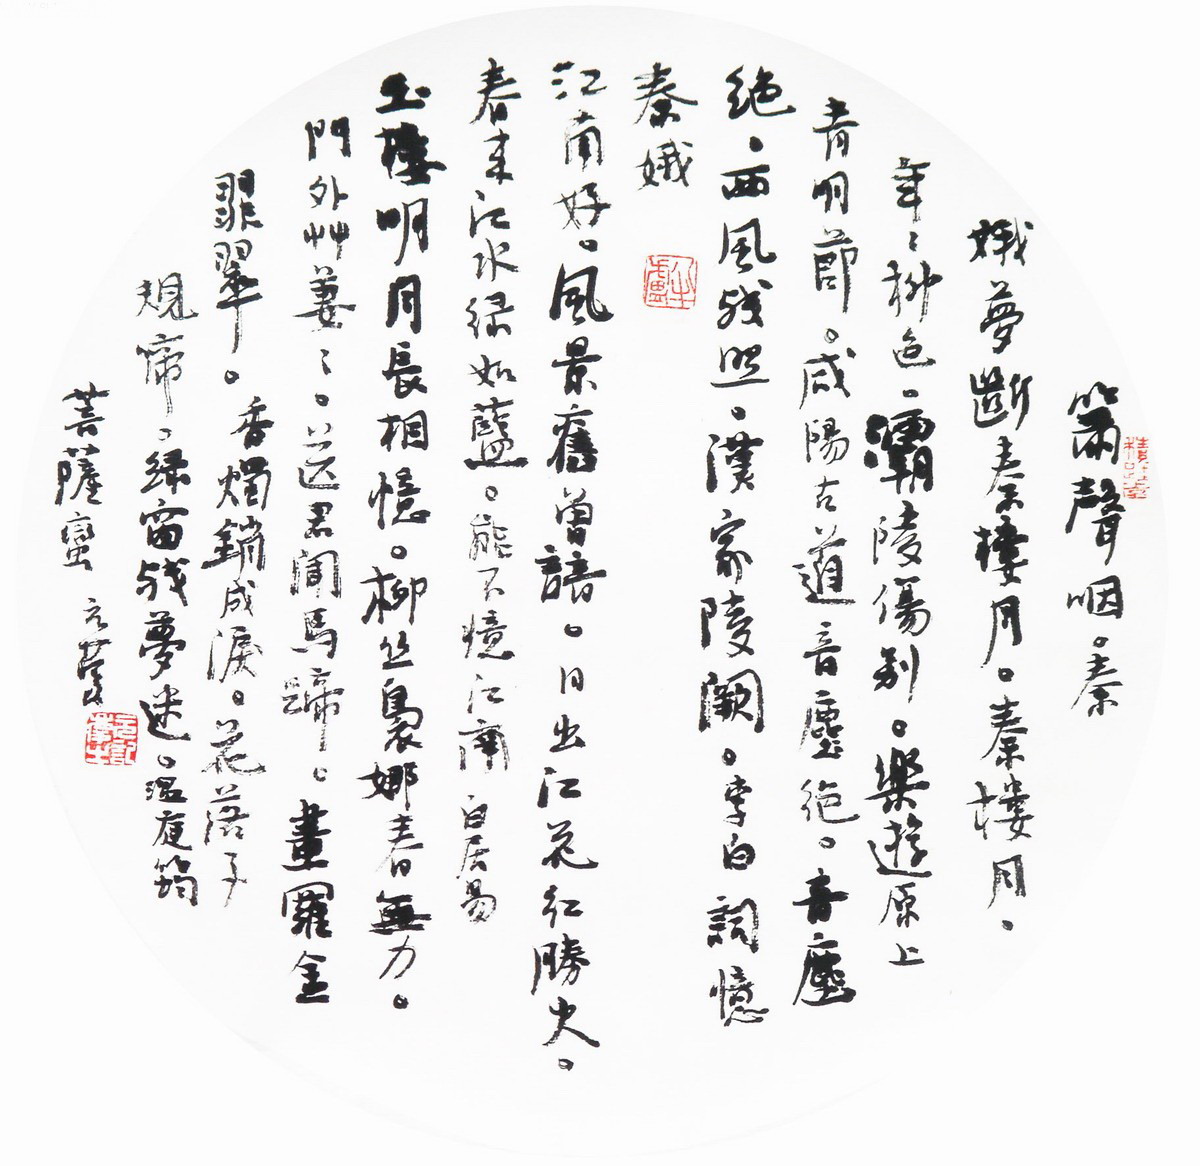 簫聲咽。秦
娥夢斷秦樓月。秦樓月、
年〻柳色。灞陵傷別。樂遊原上
青明節。咸陽古道音塵絕。音塵
絕、西風殘照。漢家陵闕。李白詞憶
秦娥
江南好。風景舊曾諳。日出江花紅勝火。
春來江水綠如藍。能不憶江南 白居易
玉樓明月長相憶。柳丝裊娜春無力。
門外艸萋〻。送君聞馬蹄。畫羅金
翡翠。香燭銷成淚。花落子
規啼。綠窗殘夢迷。溫庭筠
菩薩蠻